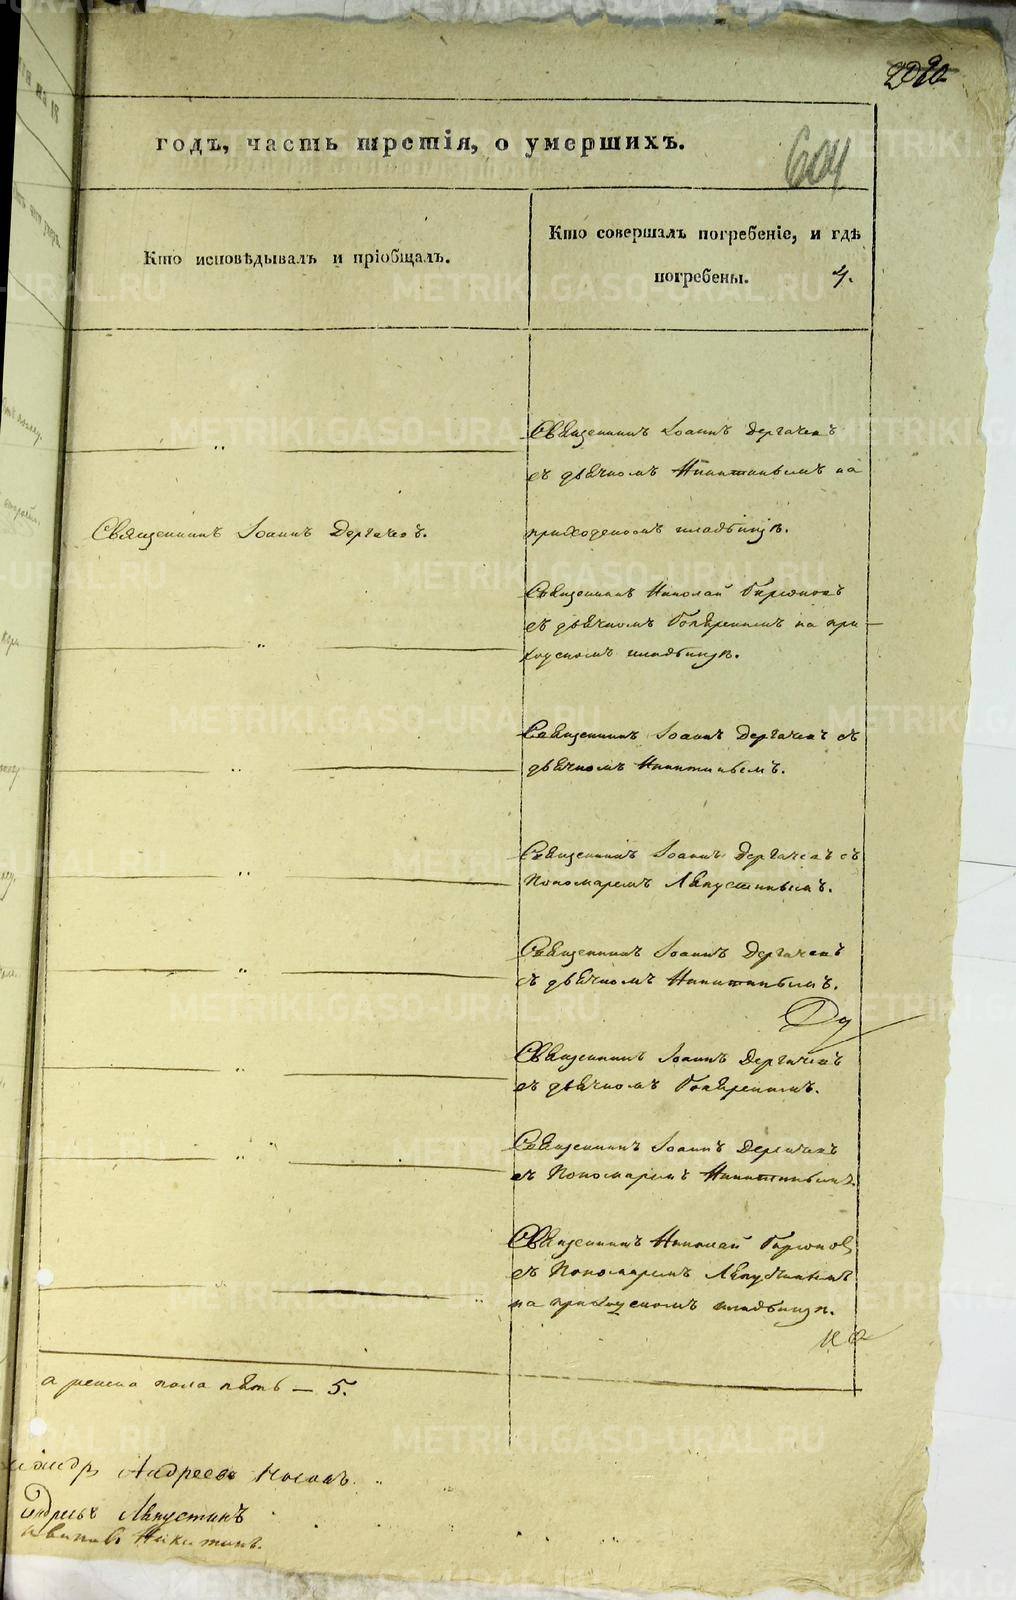 годъ, часть третія, о умершихъ.
604
Кто исповѣдывалъ и пріобщалъ.
Кто совершалъ погребеніе, и гдѣ
погребены.
Священникъ Іоаннъ Дергачевъ
съ дьячкомъ Никитинымъ на
приходскомъ кладбищѣ.
Священникъ Іоаннъ Дергачевъ.
Священникъ Николай
съ дьячкомъ на при-
ходскомъ кладбищѣ.
Священникъ Іоаннъ Дергачевъ съ
дьячкомъ Никитинымъ.
Священникъ Іоаннъ Дергачевъ съ
Пономаремъ Ляпустинымъ.
Священникъ Іоаннъ Дергачевъ
съ дьячкомъ Никитинымъ.
Священникъ Іоаннъ Дергачевъ
съ дьячкомъ
Священникъ Іоаннъ Дергачевъ
съ Пономаремъ Никитинымъ.
Священникъ Николай
съ Пономаремъ Ляпустинымъ
на приходскомъ кладбищѣ.
а женска пола пять — 5.
Андреевъ
Ляпустинъ
Никитинъ.
METRIKI.GASO-URAL.RU